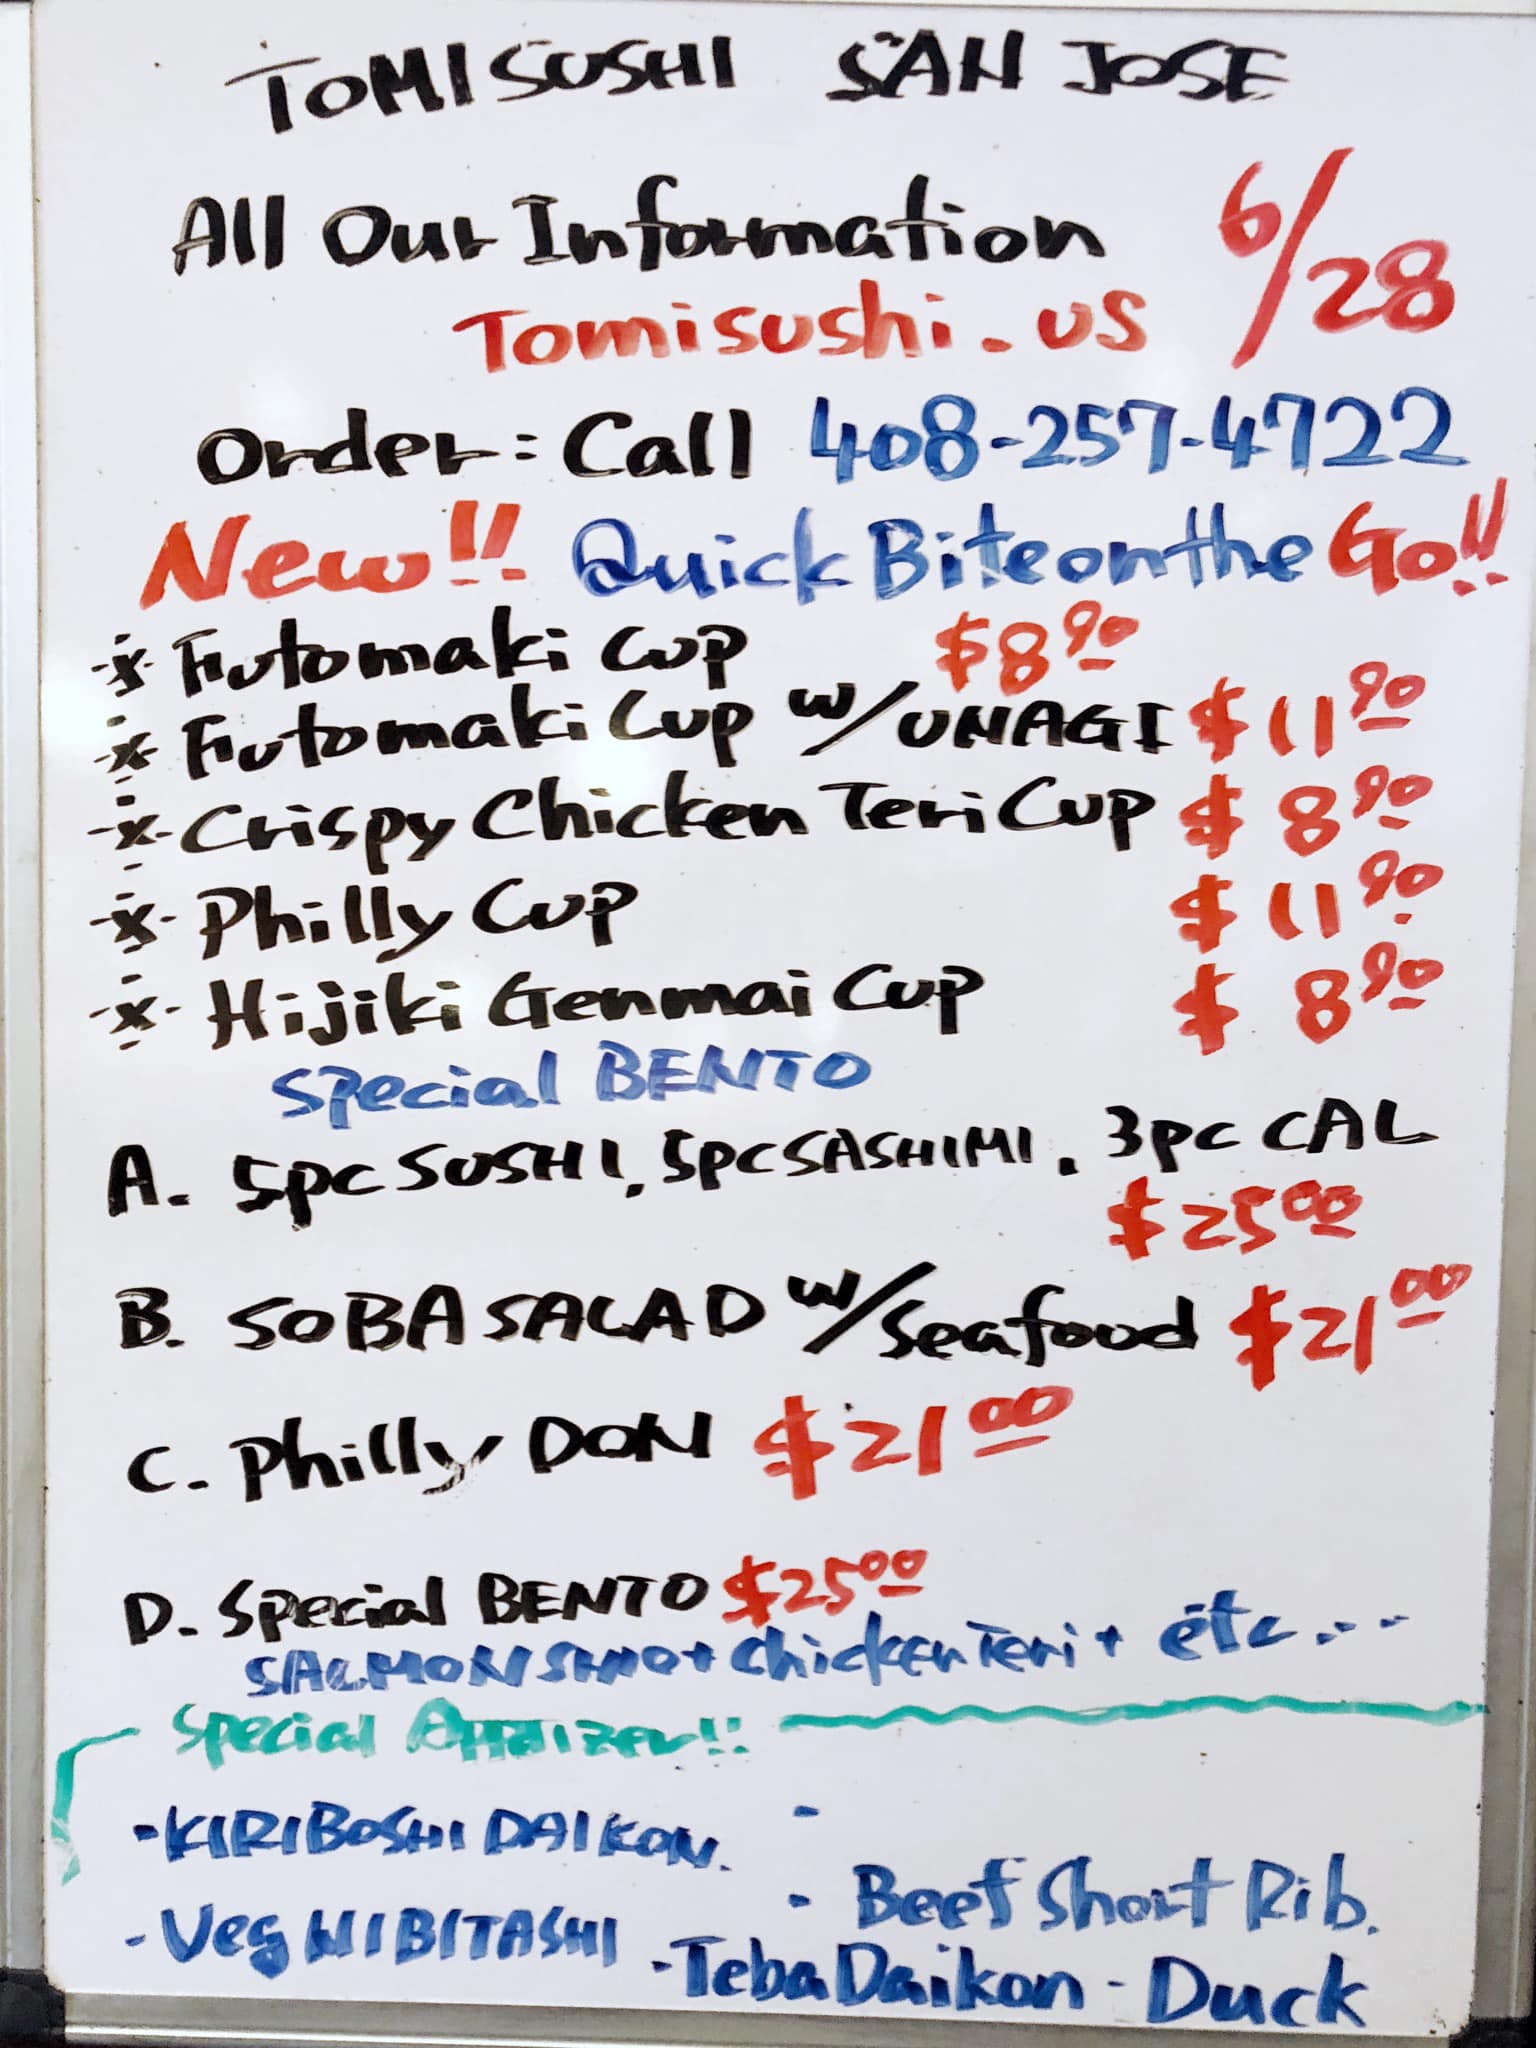 TOMISUSHI SAN JOSE
All Our Information 6/28
Tomisushi.us
Order: Call 408-257-4722
New!! Quick Bite on the Go!!
Futomaki Cup $8.90
Futomaki Cup w/UNAGI $11.90
Crispy Chicken Teri Cup $8.90
Philly Cup $11.90
Hijiki Genmai Cup $8.90
Special BENTO
A. 5pc SUSHI, 5pc SASHIMI. 3pc CAL
$25.00
B. SOBA SALAD w/Seafood $21.00
C. Philly DON $21.00
D. Special BENTO $25.00
SALMON SHIO + Chicken Teri + etc...
Special Appetizer!!
- KIRIBOSHI DAIKON. -
- Beef Short Rib.
- Veg NIBITASHI - Teba Daikon - Duck